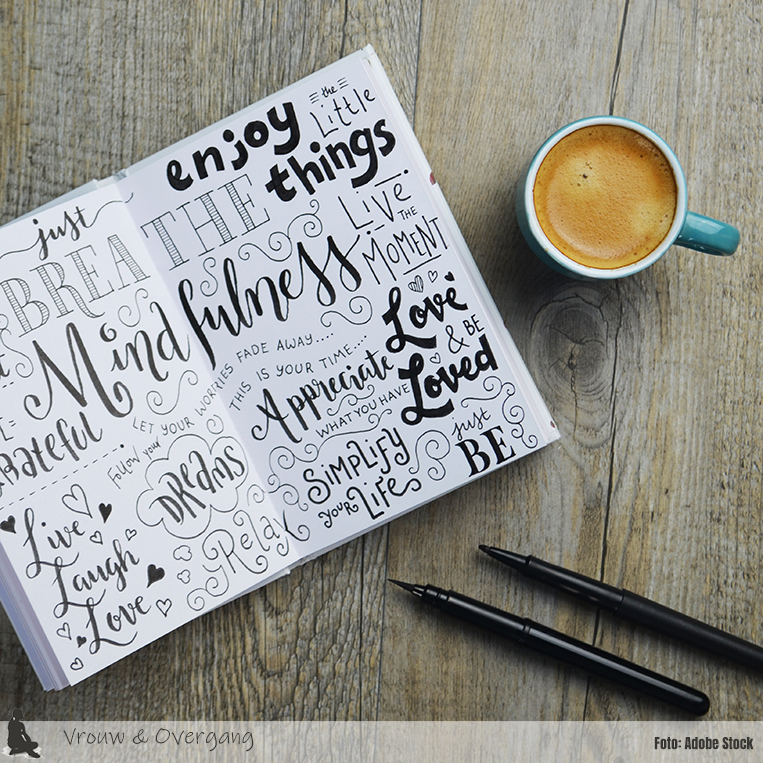 enjoy
the
Little
things
just
BREATHE
LiVe
THE
MOMENT
Mindfulness
Love
& BE
Loved
LET YOUR WORRIES FADE AWAY....
THIS IS YOUR TIME...
Appreciate
WHAT YOU HAVE
gRateful
Follow your
DReams
SiMPLiFY
YOUR LiFe
just
BE
Relax
Live
Laugh
Love
Vrouw & Overgang
Foto: Adobe Stock